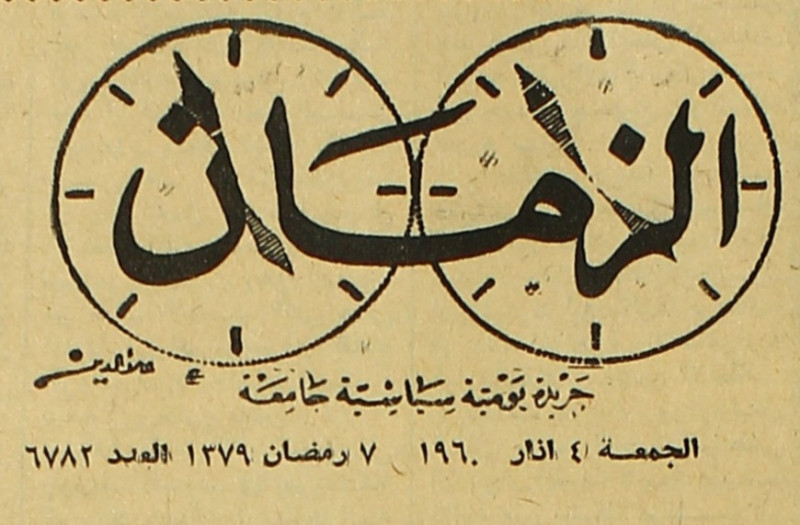 الزمان
جريدة يومية سياسية جامعة
الجمعة ٤ اذار ١٩٦٠ ٧ رمضان ١٣٧٩ العدد ٦٧٨٢